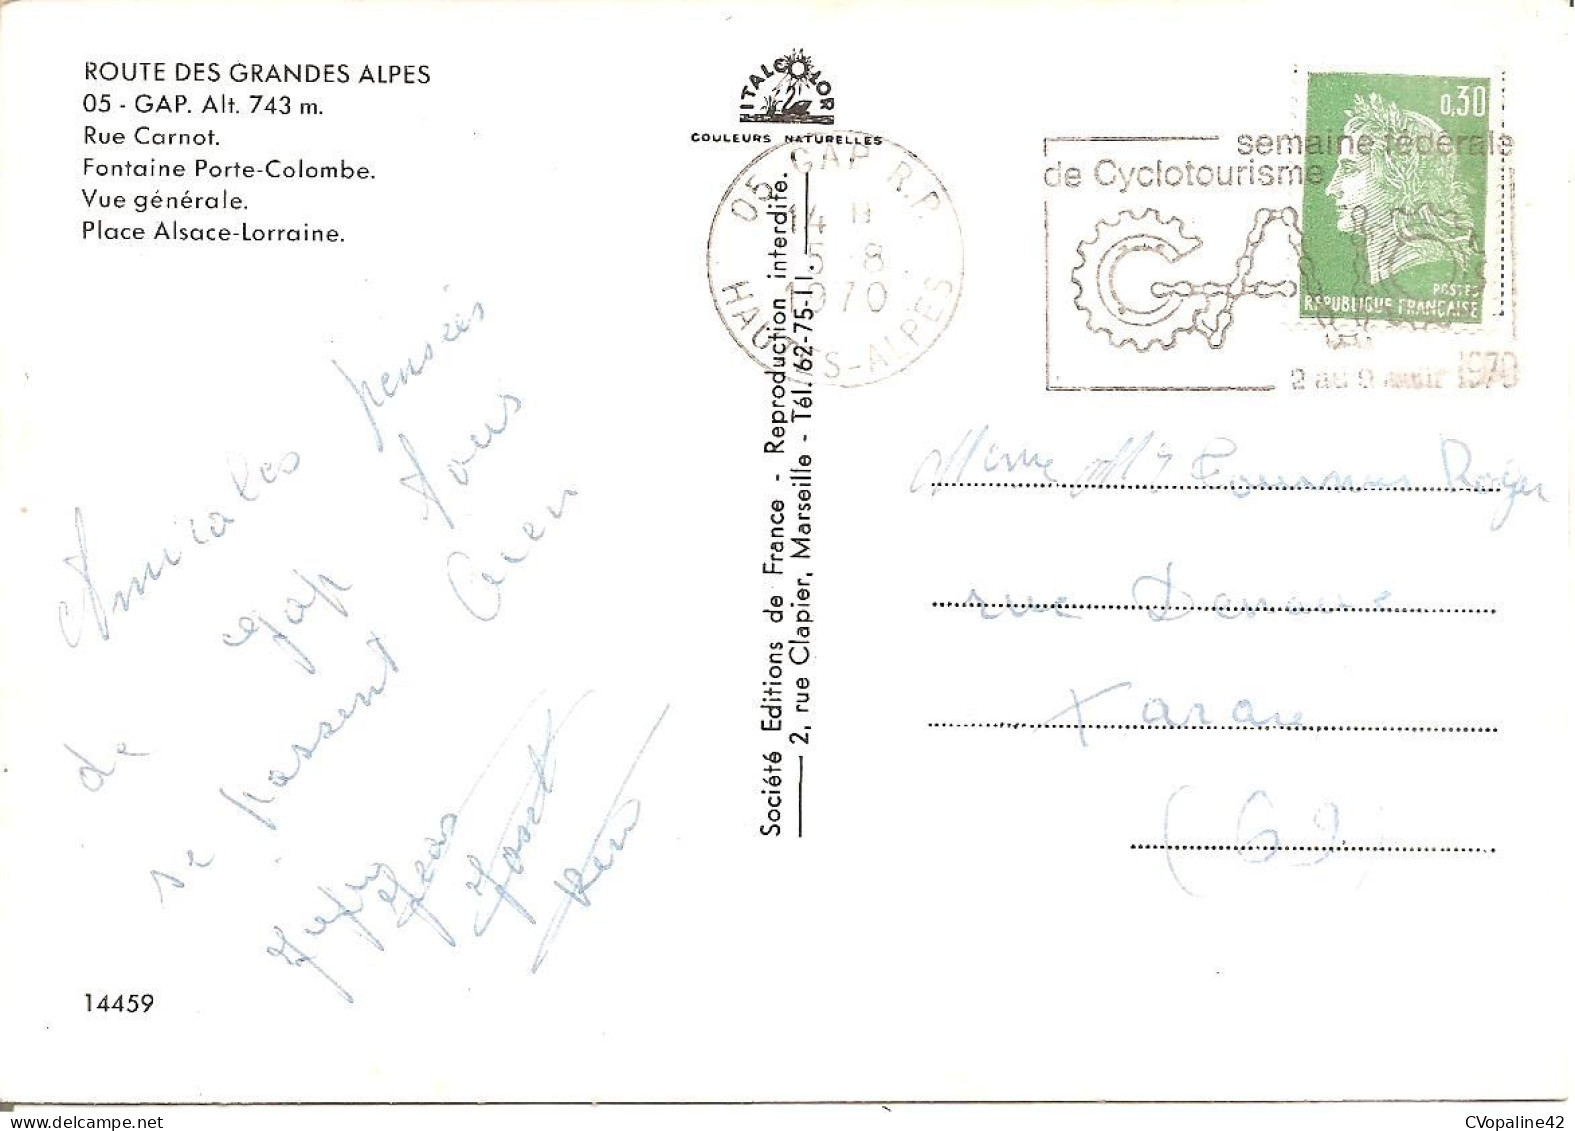 ROUTE DES GRANDES ALPES
05 - GAP. Alt. 743 m.
Rue Carnot.
Fontaine Porte-Colombe.
Vue générale.
Place Alsace-Lorraine.
Amicales pensées
de Gap tous
se passent bien
14459
ITALCOLOR
COULEURS NATURELLES
Société Editions de France - Reproduction interdite.
2, rue Clapier, Marseille - Tél. 62-75-11.
05 GAP R.P.
14 H
5-8
1970
HAUTES-ALPES
semaine fédérale
de Cyclotourisme
GAP
2 au 9 août 1970
0,30
POSTES
REPUBLIQUE FRANÇAISE
Mme Mr Roger
rue
Tarare
(69)
CVopaline42
delcampe.net